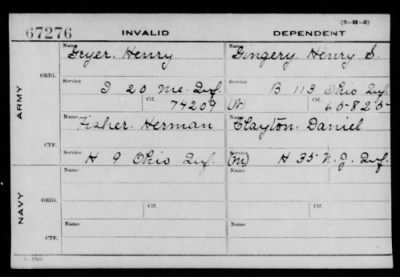 67276 INVALID DEPENDENT (3-H-5)
Name Name
Dyer, Henry Gingery, Henry S.
ORIG. Service Service
D 20 Me. Inf. B 113 Ohio Inf.
Ctf. 74209 (W) Ctf. 65825
ARMY
Name Name
Fisher, Herman Clayton, Daniel
CTF. Service Service
H 9 Ohio Inf. (M) H 35 N.J. Inf.
Name Name
NAVY
ORIG. Ctf. Ctf.
Name Name
CTF.